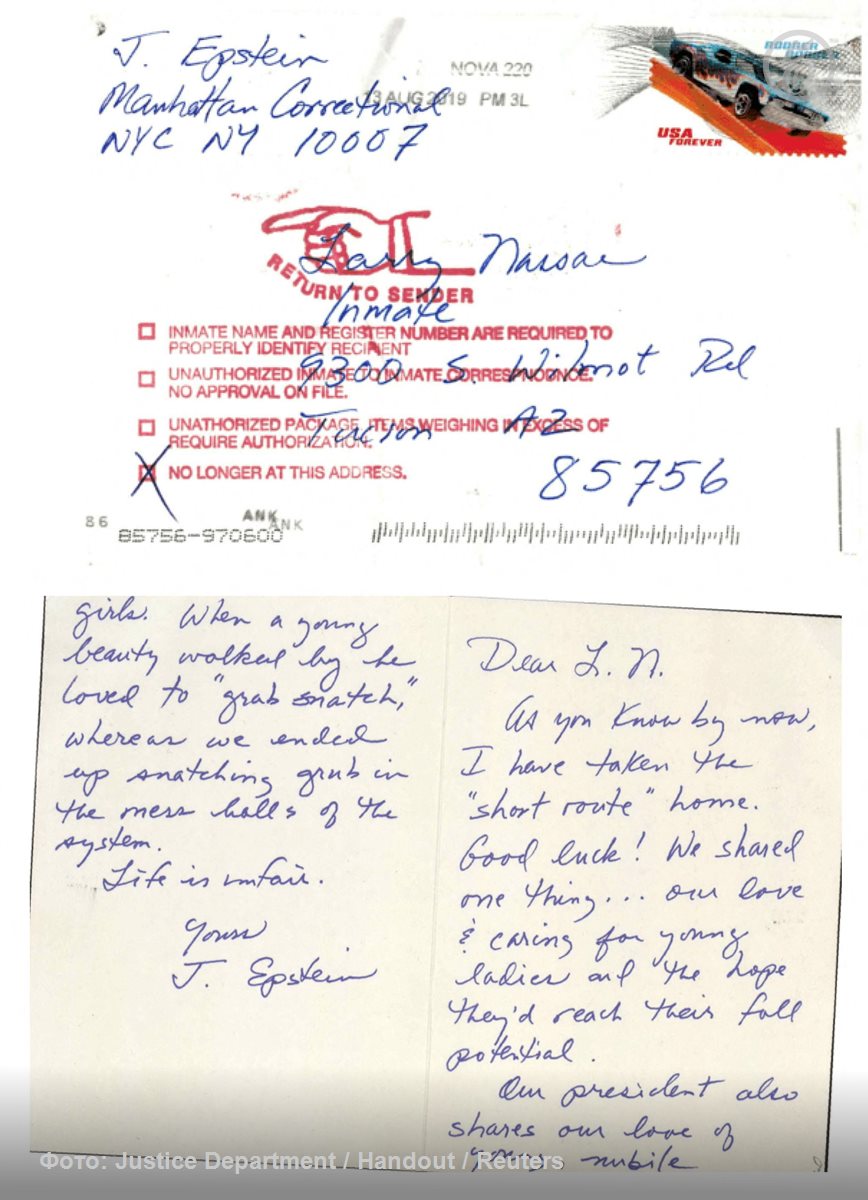 J. Epstein
Manhattan Correctional
NYC NY 10007
NOVA 220
13 AUG 2019 PM 3L
USA
FOREVER
Larry Nassar
Inmate
9300 S. Wilmot Rd
Tucson AZ
85756
RETURN TO SENDER
INMATE NAME AND REGISTER NUMBER ARE REQUIRED TO
PROPERLY IDENTIFY RECIPIENT
UNAUTHORIZED INMATE TO INMATE CORRESPONDNCE.
NO APPROVAL ON FILE.
UNATHORIZED PACKAGE, ITEMS WEIGHING IN EXCESS OF
REQUIRE AUTHORIZATION.
NO LONGER AT THIS ADDRESS.
86
ANK
ANK
85756-970600
Dear L. N.
As you know by now,
I have taken the
"short route" home.
Good luck! We shared
one thing... our love
& caring for young
ladies and the hope
they'd reach their full
potential.
Our president also
shares our love of
young, nubile
girls. When a young
beauty walked by he
loved to "grab snatch,"
whereas we ended
up snatching grub in
the mess halls of the
system.
Life is unfair.
Yours
J. Epstein
Фото: Justice Department / Handout / Reuters